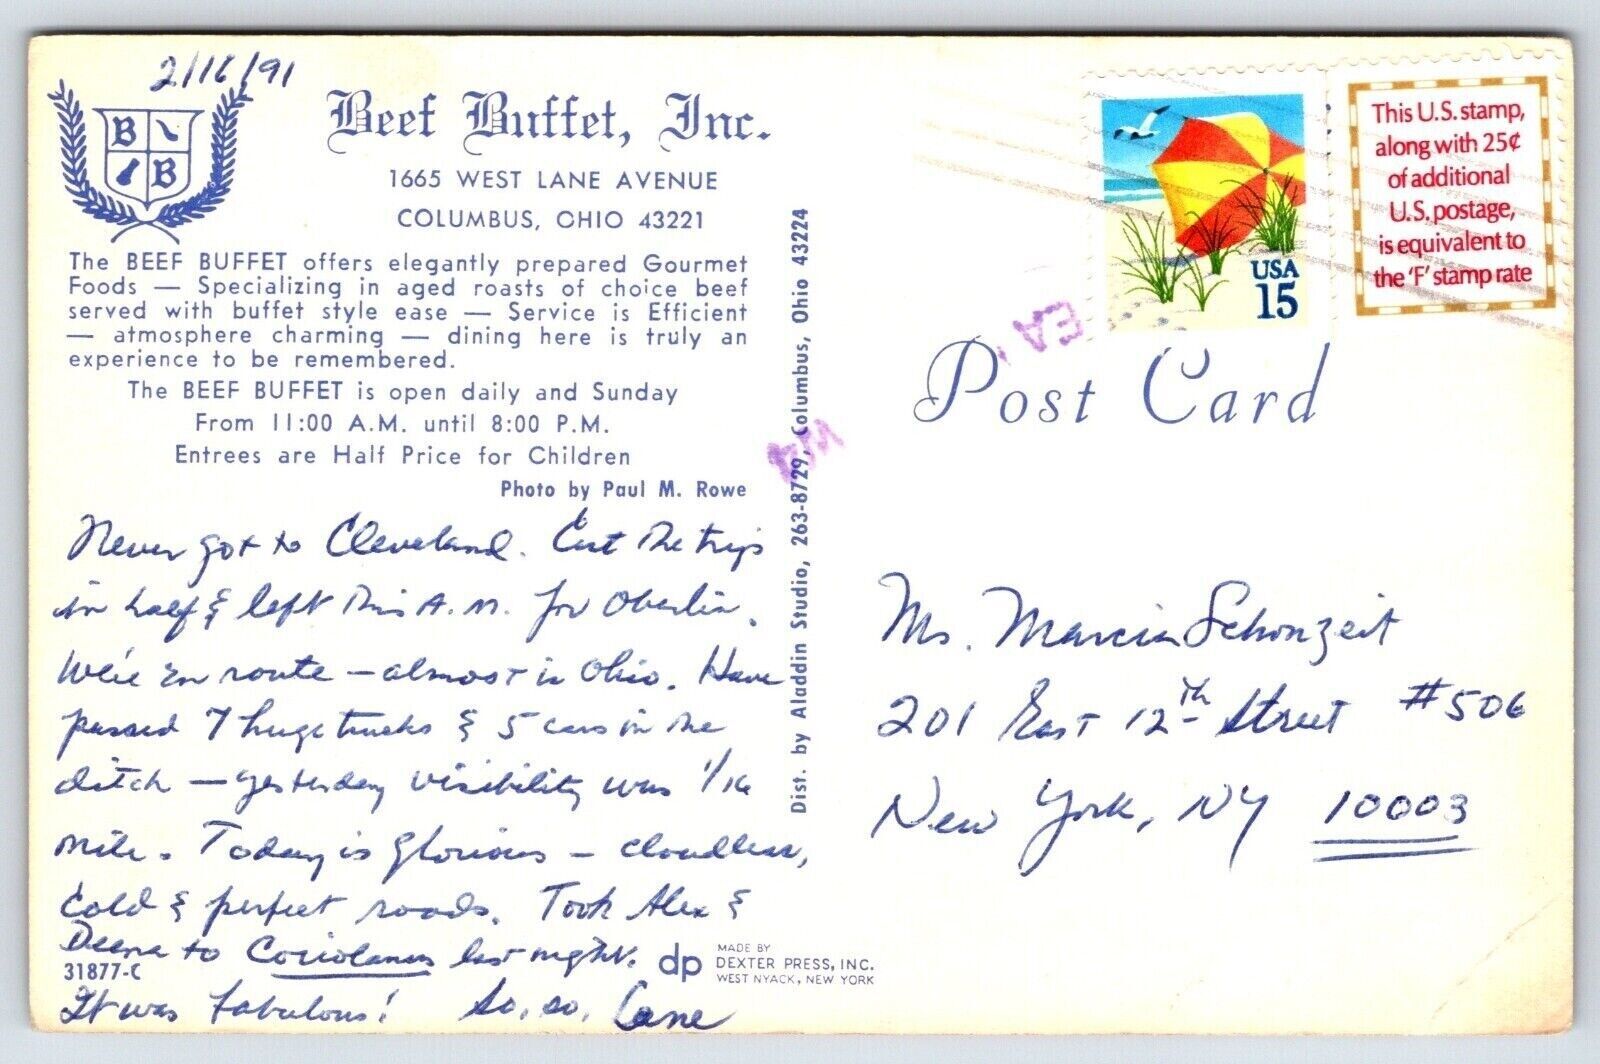 2/16/91
B
B
Beef Buffet, Inc.
1665 WEST LANE AVENUE
COLUMBUS, OHIO 43221
The BEEF BUFFET offers elegantly prepared Gourmet
Foods — Specializing in aged roasts of choice beef
served with buffet style ease — Service is Efficient
— atmosphere charming — dining here is truly an
experience to be remembered.
The BEEF BUFFET is open daily and Sunday
From 11:00 A.M. until 8:00 P.M.
Entrees are Half Price for Children
Photo by Paul M. Rowe
Never got to Cleveland. Cut the trip
in half & left this A.M. for Oberlin.
We're en route — almost in Ohio. Have
passed 7 huge trucks & 5 cars in the
ditch — yesterday visibility was 1/16
mile. Today is glorious — cloudless,
cold & perfect roads. Took Alex &
Deena to Coriolanus last night.
It was fabulous! So, so, Lane
31877-C
dp
MADE BY
DEXTER PRESS, INC.
WEST NYACK, NEW YORK
Dist. by Aladdin Studio, 263-8729, Columbus, Ohio 43224
USA
15
This U.S. stamp,
along with 25¢
of additional
U.S. postage,
is equivalent to
the 'F' stamp rate
EA
Post Card
Ms. Marcia Schonzeit
201 East 12th Street #506
New York, NY 10003